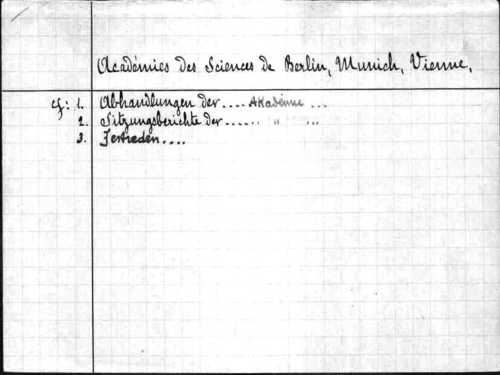 Académies des Sciences de Berlin, Munich, Vienne.
cf: 1. Abhandlungen der .... Akademie ...
2. Sitzungsberichte der ...... " ...
3. Festreden ....